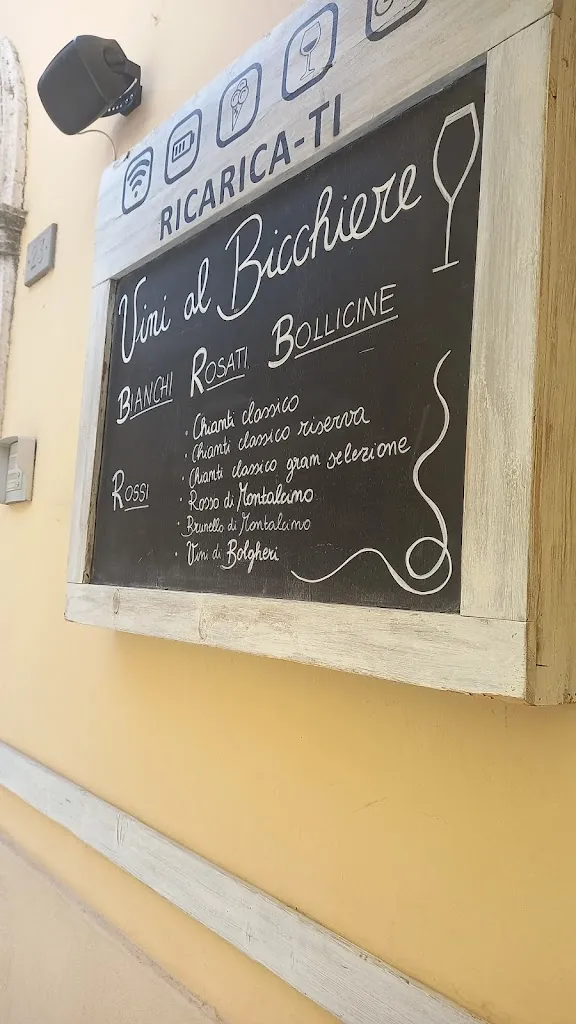 RICARICA-TI
Vini al Bicchiere
BIANCHI ROSATI BOLLICINE
ROSSI
• Chianti classico
• Chianti classico riserva
• Chianti classico gram selezione
• Rosso di Montalcino
• Brunello di Montalcino
• Vini di Bolgheri